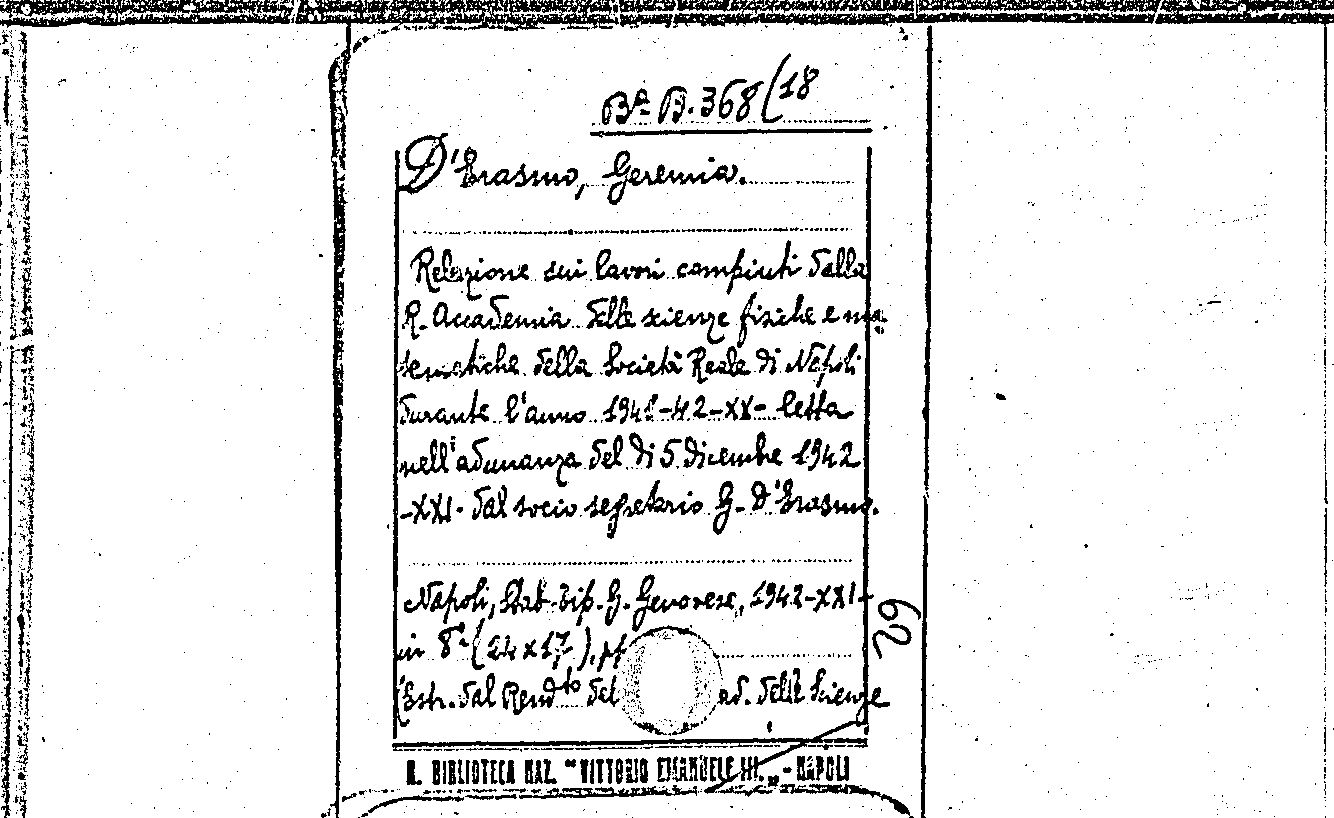 Bª B. 368(18
D'Erasmo, Geremia.
Relazione sui lavori compiuti dalla
R. Accademia delle scienze fisiche e ma-
tematiche della Società Reale di Napoli
durante l'anno 1941-42-XX- letta
nell'adunanza del dì 5 dicembre 1942
-XXI- dal socio segretario G. D'Erasmo.
Napoli, Stab. Tip. G. Genovese, 1942-XXI-
in 8º (24 x 17), pp
(Estr. dal Rendto del ad. delle Scienze
29
R. BIBLIOTECA NAZ. "VITTORIO EMANUELE III." - NAPOLI